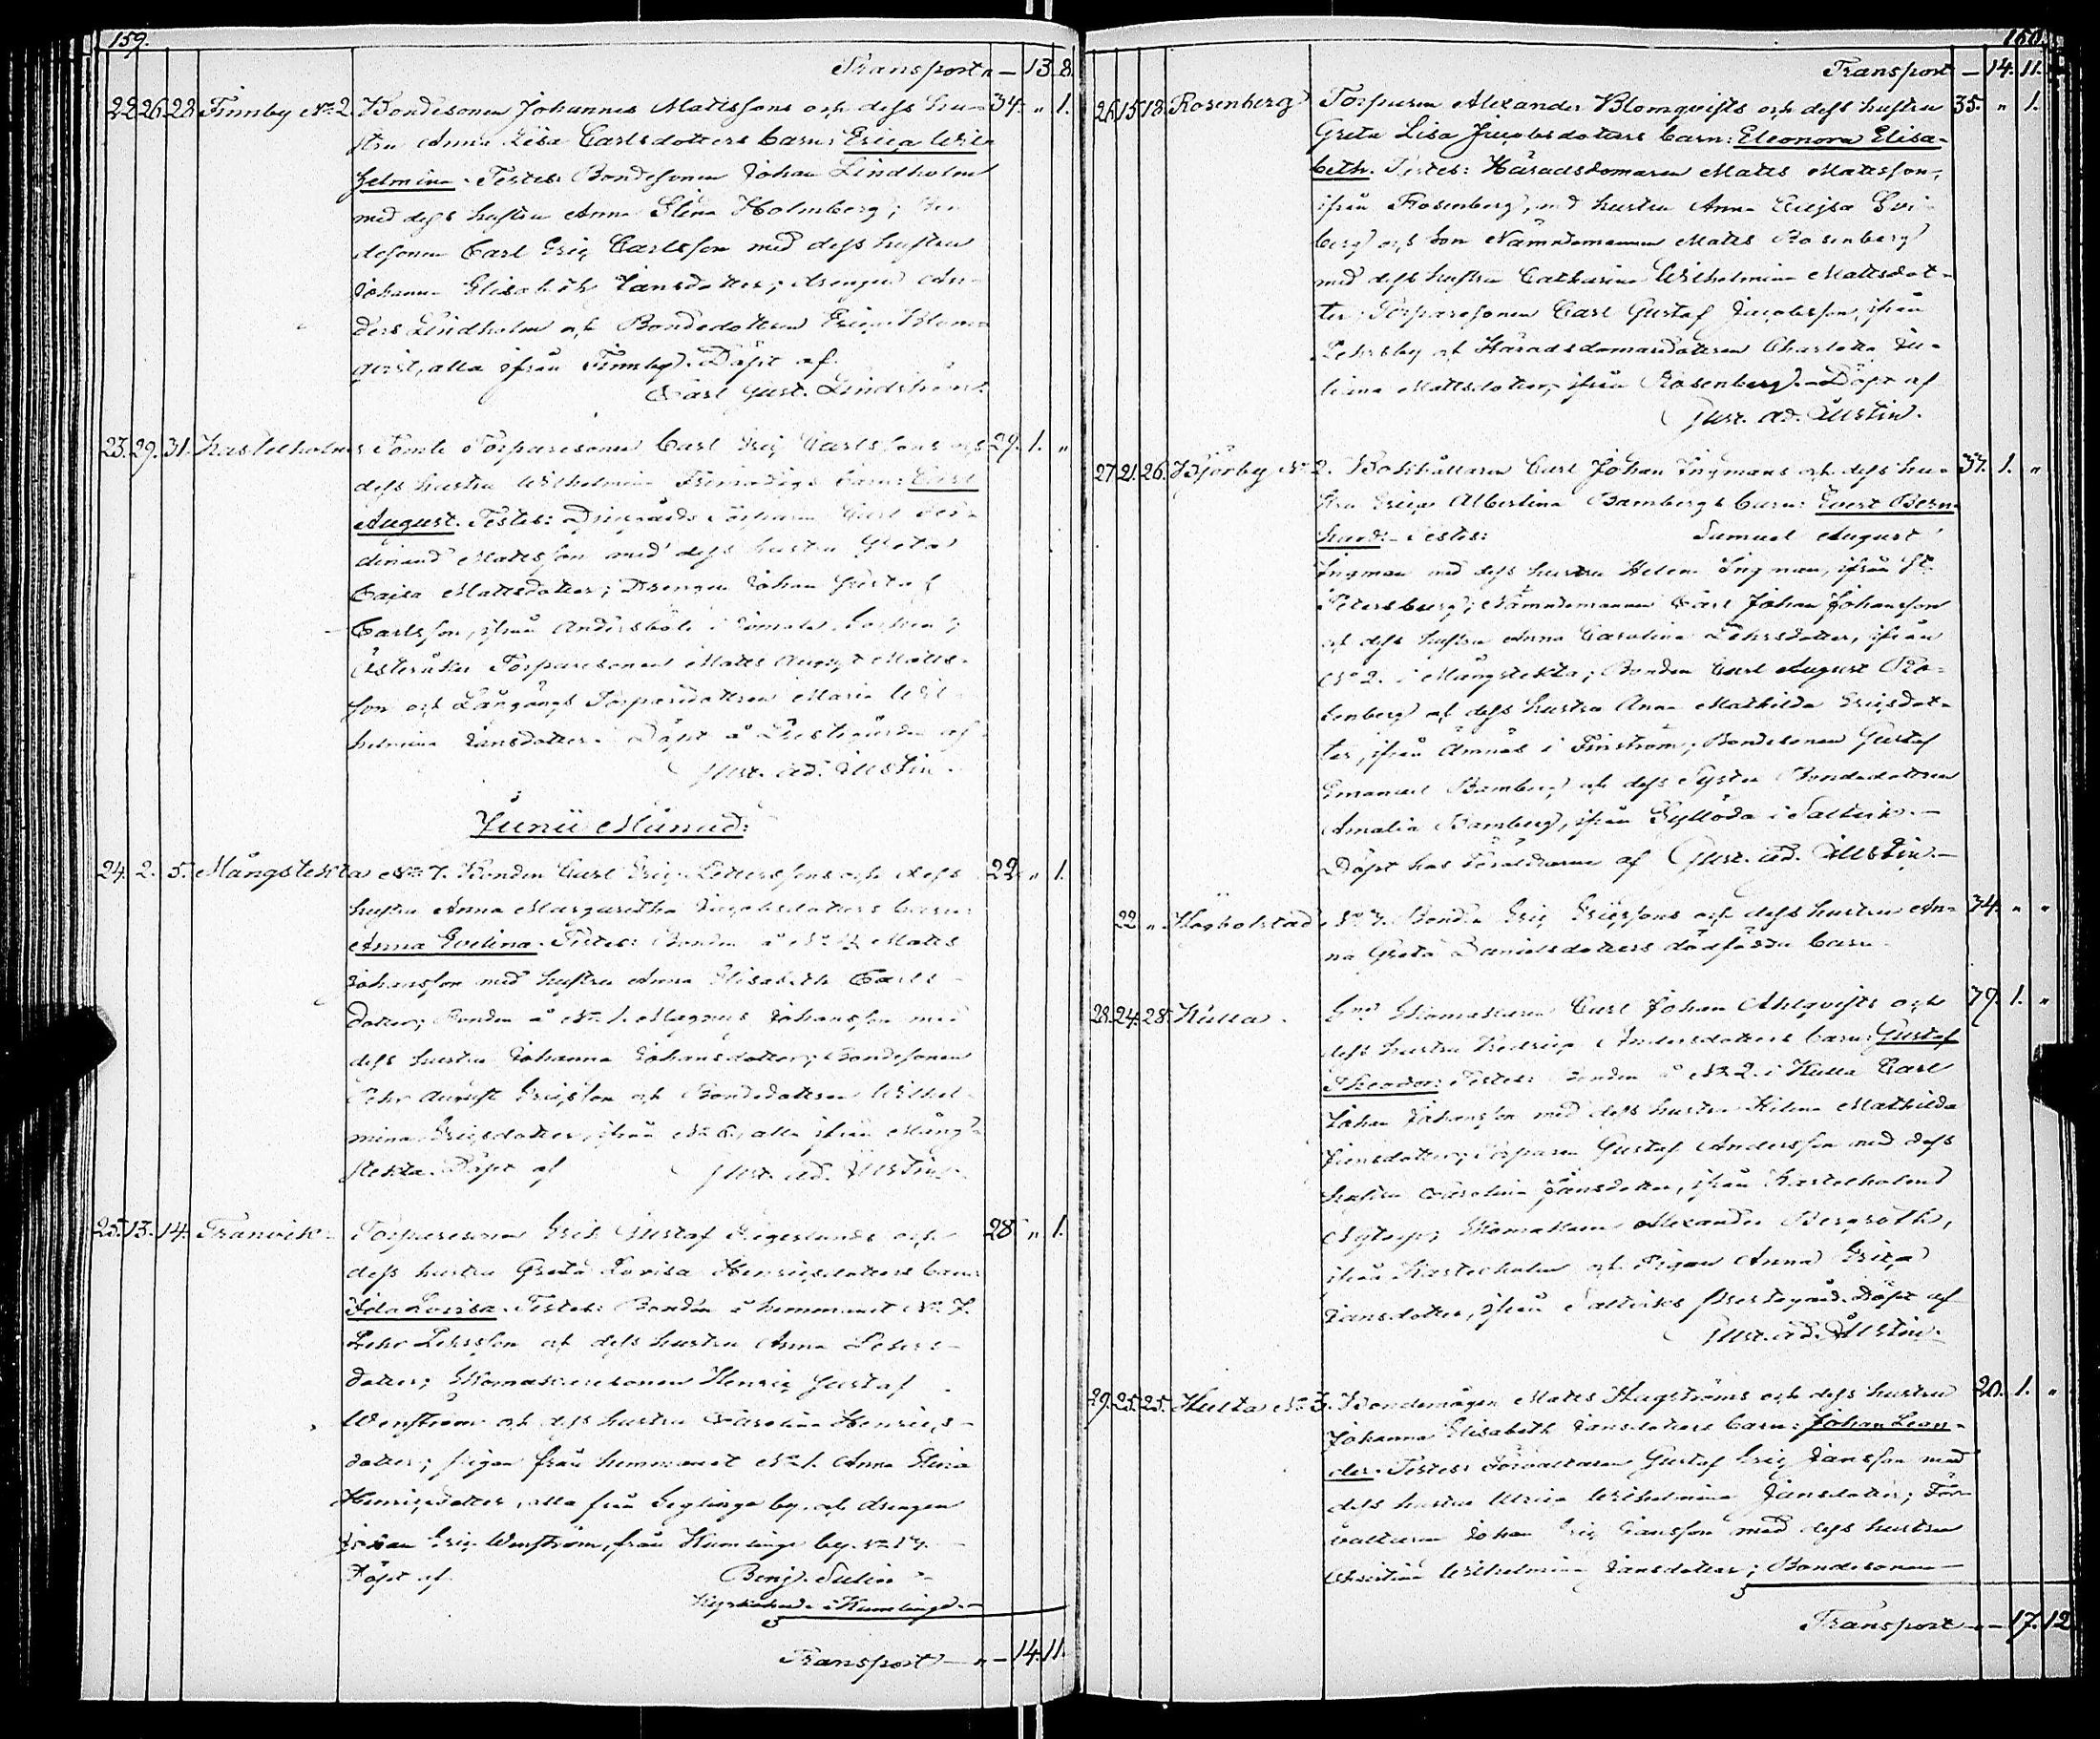 159.
Transport „ — 13. 8.
22. 26. 28. Finnby No 2. Bondesonen Johannes Mattssons och dess hu- 34. „ 1.
stru Anna Lisa Carlsdotters barn: Erica Wil-
helmina. Testes: Bondesonen Johan Lindholm
med dess hustru Anna Stina Holmberg; Bon-
desonen Carl Eric Carlsson med dess hustru
Johanna Elisabeth Jansdotter; drengen An-
ders Lindholm och Bondedottren Erica Blom-
qvist, alla ifrån Finnby. Döpt af
Carl Gust. Lindström.
23. 29. 31. Kastelholms Tomte Torparesonen Carl Eric Carlssons och 29. 1. „
dess hustru Wilhelmina barn: Carl
August. Testes: Torparen Carl Fer-
dinand Mattsson med dess hustru Greta
Cajsa Mattsdotter; Drengen Johan Gustaf
Carlsson, ifrån Andersböle i
Österåker Torparesonen Matts August Matts-
son och Långängs Torparedottren Maria Wil-
helmina Jansdotter. Döpt å Prestgården af
Gust. Ad. Öustin.
Junii Månad:
24. 2. 5. Mångstekta No 7. Bonden Carl Eric Petterssons och dess 22. „ 1.
hustru Anna Margaretha Jacobsdotters barn:
Anna Evelina. Testes: Bonden å No Matts
Johansson med hustru Anna Elisabeth Carls-
dotter; Bonden å No 1. Magnus Johansson med
dess hustru Johanna Johansdotter; Bondesonen
Pehr August Ericsson och Bondedottren Wilhel-
mina Ericsdotter, ifrån No 6, alla ifrån Mång-
stekta. Döpt af Gust. Ad. Öustin.
25. 13. 14. Tranvik. Torparesonen Erik Gustaf Segerlunds och 28. „ 1.
dess hustru Greta Lovisa Henricsdotters barn
Ida Lovisa. Testes: Bonden å hemmanet No 7.
Pehr Pehrsson och dess hustru Anna Pehrs-
dotter; Skomakaresonen Henric Gustaf
Wenström och dess hustru Carolina Henrics-
dotter; pigan från hemmanet No 1. Anna Stina
Henricsdotter, alla från Seglinge by och drengen
Johan Eric Wenström, från Kumlinge by No 17.
Döpt af Benj. Sulin
Kyrkoherde i Kumlinge.
Transport — „ — 14. 11.
160.
Transport — 14. 11.
26. 15. 18. Rosenberg Torparen Alexander Blomqvists och dess hustru 35. „ 1.
Greta Lisa Jacobsdotters barn: Eleonora Elisa-
beth. Testes: Häradsdomaren Matts Mattsson,
ifrån Rosenberg, med hustru Anna Cajsa
berg och Son Nämndemannen Matts Rosenberg
med dess hustru Catharina Wilhelmina Mattsdot-
ter; Torparesonen Carl Gustaf Jacobsson, ifrån
Pehrsby och Häradsdomaredottren Charlotta Ju-
liana Mattsdotter, ifrån Rosenberg. Döpt af
Gust. Ad. Öustin.
27. 21. 26. Björby No 2. Bokhållaren Carl Johan Ingmans och dess hu- 37. 1. „
stru Erica Albertina Bambergs barn: Evert Bern-
hard. Testes: Samuel August
Ingman med dess hustru Helena Ingman, ifrån St
Petersburg; Nämndemannen Carl Johan Johansson
och dess hustru Anna Carolina Pehrsdotter, ifrån
No 2. i Mångstekta; Bonden Carl August Ro-
senberg och dess hustru Anna Mathilda Ericsdot-
ter, ifrån Ämnäs i Finström; Bondesonen Gustaf
Emanuel Bamberg och dess Syster Bondedottren
Amalia Bamberg, ifrån Syllöda i Saltvik.
Döpt hos föräldrarne af Gust. Ad. Öustin.
22. „ Högbolstad No 7. Bonden Eric Ericssons och dess hustru An- 34. „ „
na Greta Danielsdotters dödfödda barn.
28. 24. 28. Kulla. Skomakaren Carl Johan Ahlqvists och 39. 1. „
dess hustru Fredrica Andersdotters barn: Gustaf
Theodor. Testes: Bonden å No 2. i Kulla Carl
Johan Johansson med dess hustru Helena Mathilda
Jansdotter; Torparen Gustaf Andersson med dess
hustru Carolina Jansdotter, ifrån Kastelholms
Nytorp; Skomakaren Alexander Bergroth,
ifrån Kastelholm och Pigan Anna Erica
Jansdotter, ifrån Saltviks Prestegård. Döpt af
Gust. Ad. Öustin.
29. 25. 25. Hulta No 3. Bondemågen Matts Hagströms och dess hustru 20. 1. „
Johanna Elisabeth Jansdotters barn: Johan Lean-
der. Testes: Förvaltaren Gustaf Eric Jansson med
dess hustru Ulrica Wilhelmina Jansdotter; För-
valtaren Johan Eric Jansson med dess hustru
Christina Wilhelmina Jansdotter; Bondesonen
Transport — 17. 12